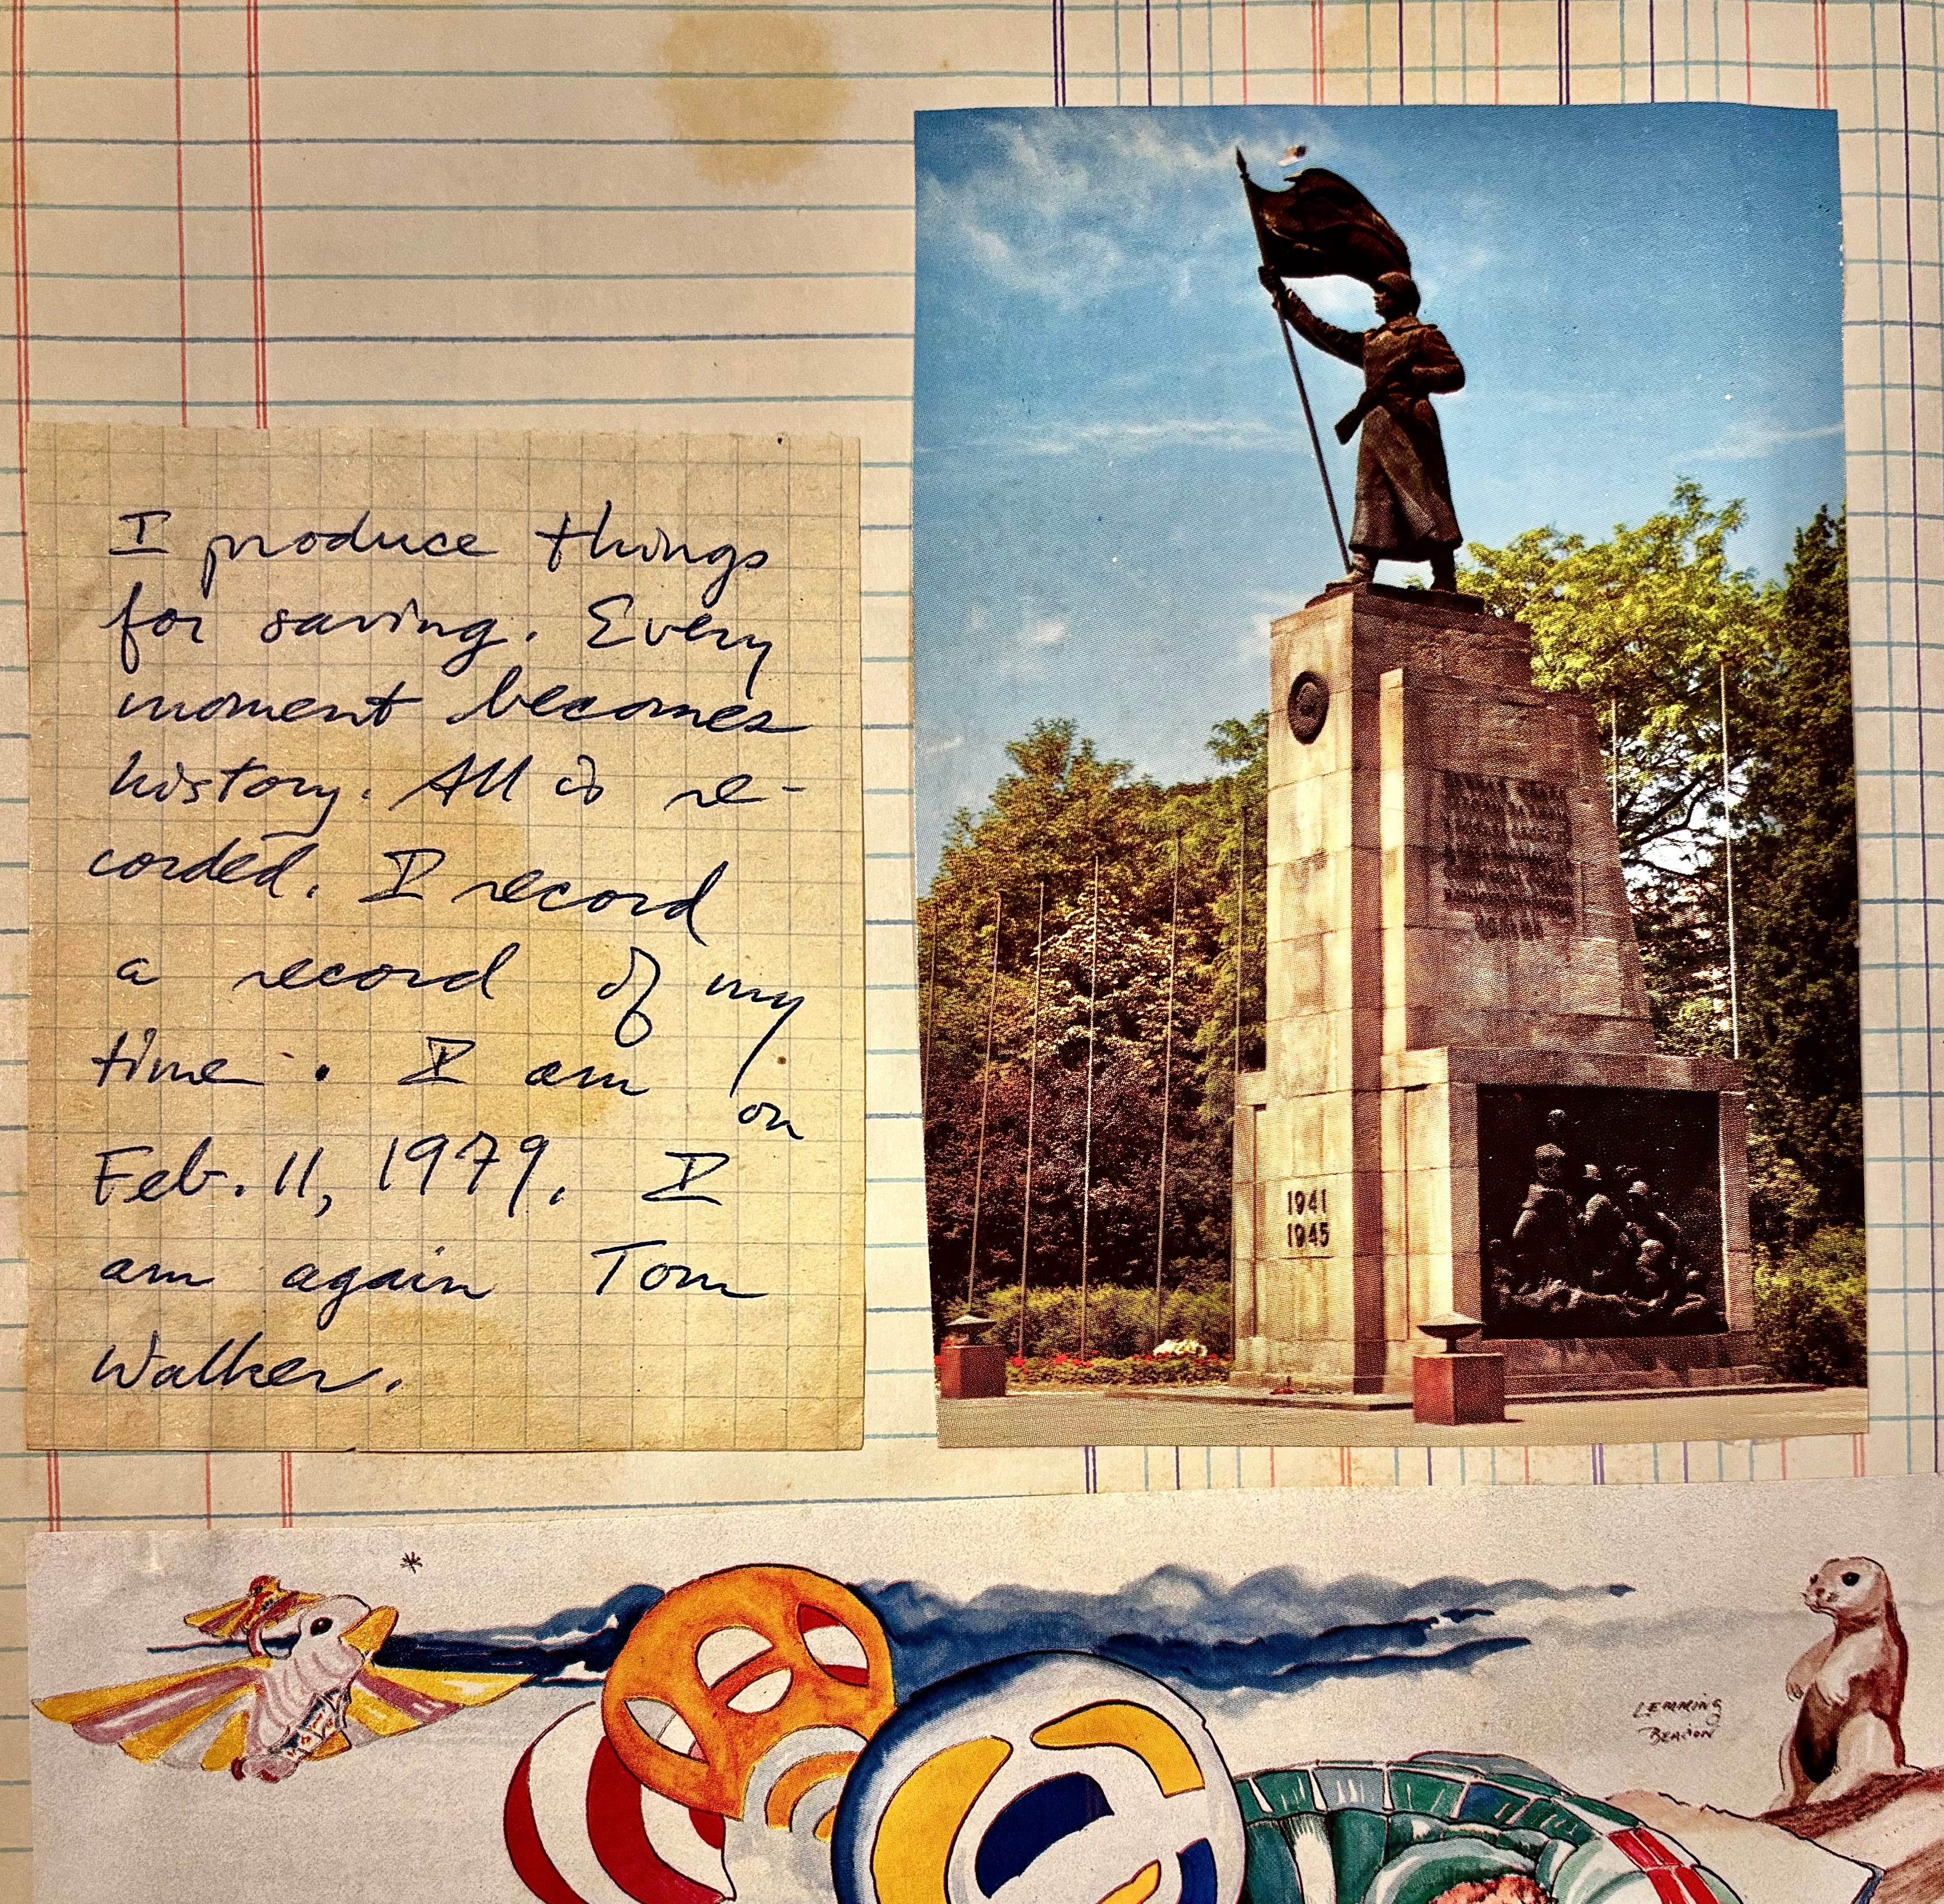 I produce things
for saving. Every
moment becomes
history. All is re-
corded. I record
a record of my
time. I am on
Feb. 11, 1979. I
am again Tom
Walker.
1941
1945
LEMMING
BEACON